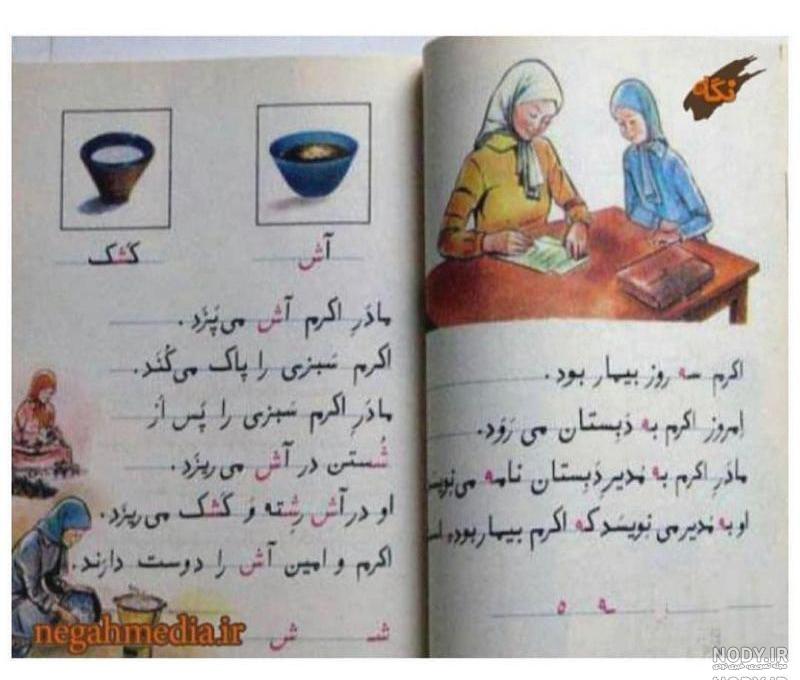 نگاه
اکرم سه روز بیمار بود.
اِمروز اکرم به دَبِستان می رَوَد.
مادَرِ اکرم به مُدیرِ دَبِستان نامه می نِویسَد
او به مُدیر می نِویسَد که اکرم بیمار بوده است
ـه ه
آش
کَشک
مادَرِ اکرم آش می پَزَد.
اکرم سَبزی را پاک می کُنَد.
مادَرِ اکرم سَبزی را پَس اَز
شُستن در آش می ریزَد.
او در آش رِشته وَ کَشک می ریزَد.
اکرم و امین آش را دوست دارَند.
شـ ش
negahmedia.ir
NODY.IR